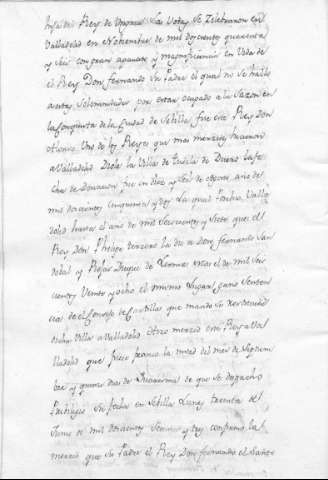 Infa del Rey de Vngria Las Vodas se Zelebraron en
Valladolid en Nobiembre de mil docientos quarenta
y seis con gran aparato y magnificencia en Vida de
el Rey Don fernando su Padre el qual no se hallo
a estas Solemnidades por estar ocupado a la Sazon en
la Conquista de la Ciudad de Sebilla fue este Rey Don
Alonso Vno de los Reyes que mas mercedes hicieron
a Valladolid Diola la Villa de Tudela de Duero La fe
cha de donacion fue en diez y seis de agosto, año de
mil docientos cinquenta y
dolid hasta el año de mil Seiscientos y Siete que el
Rey Don Phelipe tercero la dio a Don fernando San
dobal y Rojas Duque de Lerma mas el de mil Seis
cientos Veinte y ocho el mismo Lugar gano Senten
cia del Consejo de Castilla que mando se
dicha Villa a Valladolid Otra merced este Rey a Va
lladolid que fuese franca la mitad del mes de Septiem
bre y quince dias de Quaresma de que se despacho
Pribilegio Su fecha en Sebilla Lunes treinta de
Junio de mil docientos Sesenta y tres confirmo la
merced que Su Padre el Rey Don fernando el Santo